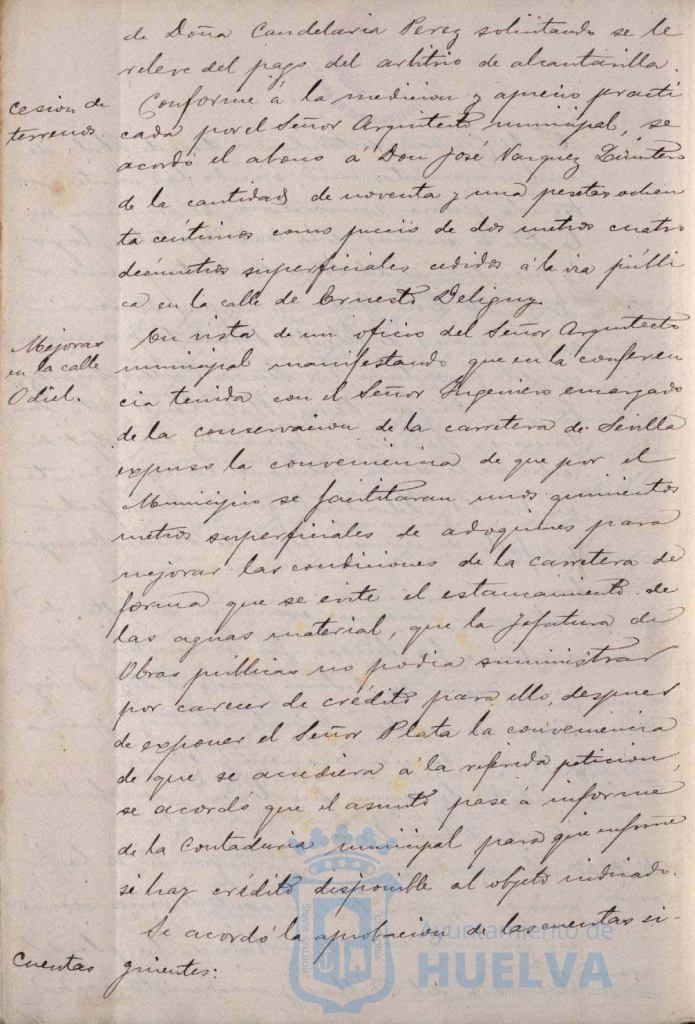 de Doña Candelaria Perez solicitando se le
releve del pago del arbitrio de alcantarilla.
cesion de
terrenos.
Conforme á la medicion y aprecio practi
cada por el Señor Arquitecto municipal, se
acordó el abono á Don José Vazquez Quintero
de la cantidad de noventa y una pesetas ochen
ta centimos como precio de dos metros cuatro
decimetros superficiales cedidos á la via públi
ca en la calle de Ernesto Deligny.
Mejoras
en la calle
Odiel.
En vista de un oficio del Señor Arquitecto
municipal manifestando que en la conferen
cia tenida con el Señor Ingeniero encargado
de la conservacion de la carretera de Sevilla
expuso la conveniencia de que por el
Municipio se facilitaran unos quinientos
metros superficiales de adoquines para
mejorar las condiciones de la carretera de
forma que se evite el estancamiento de
las aguas material, que la Jefatura de
Obras públicas no podia suministrar
por carecer de crédito para ello, despues
de exponer el Señor Plata la conveniencia
de que se accediera á la referida peticion,
se acordó que el asunto pase á informe
de la Contaduria municipal para que informe
si hay crédito disponible al objeto indicado.
Cuentas
Se acordó la aprobacion de las cuentas si-
guientes:
Ayuntamiento de
HUELVA